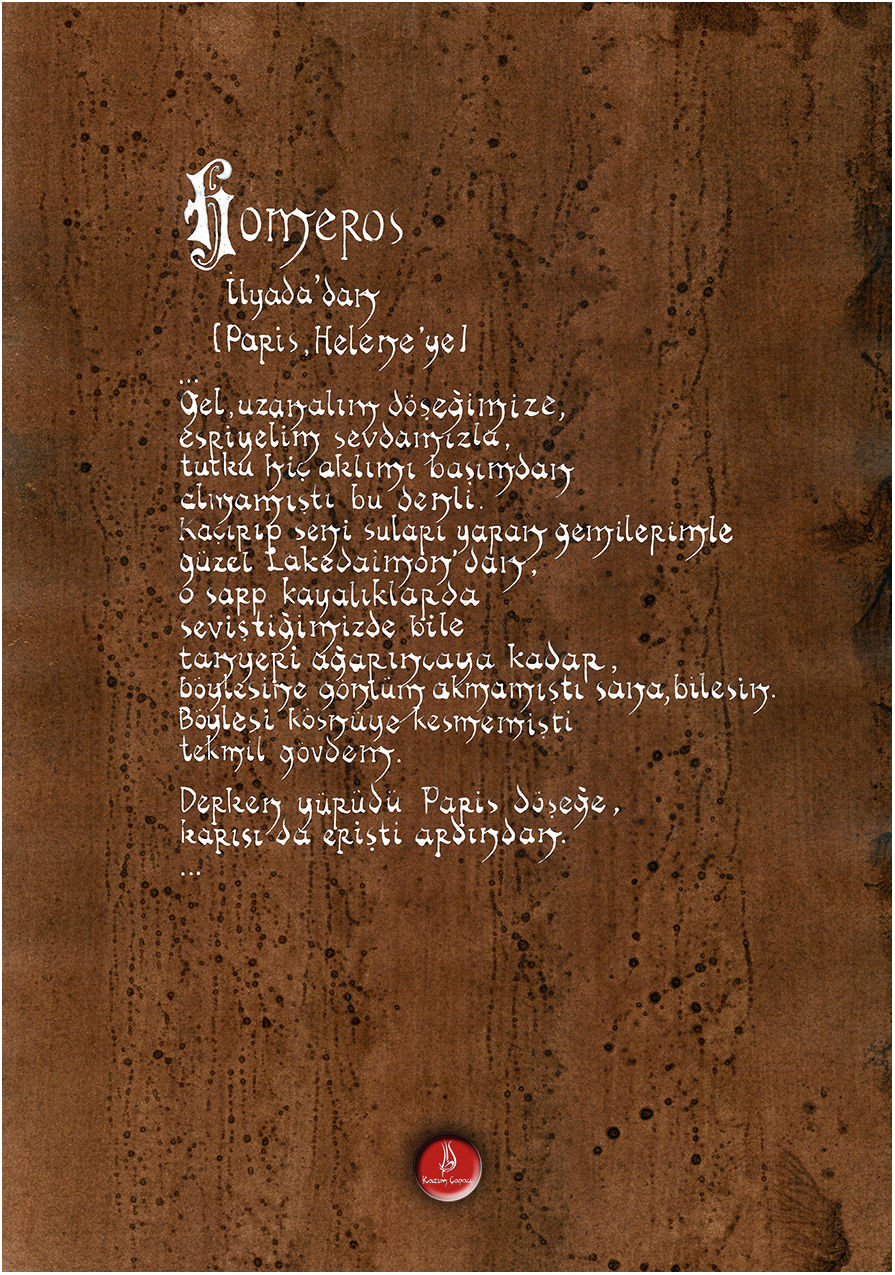 Homeros
İlyada'dan
[Paris, Helene'ye]
...
Gel, uzanalım döşeğimize,
esriyelim sevdamızla,
tutku hiç aklımı başımdan
almamıştı bu denli.
Kaçırıp seni suları yaran gemilerimle
güzel Lakedaimon'dan,
o sarp kayalıklarda
seviştiğimizde bile
tanyeri ağarıncaya kadar,
böylesine gönlüm akmamıştı sana, bilesin.
Böylesi kösnüye kesmemişti
tekmil gövdem.
Derken yürüdü Paris döşeğe,
karısı da erişti ardından.
...